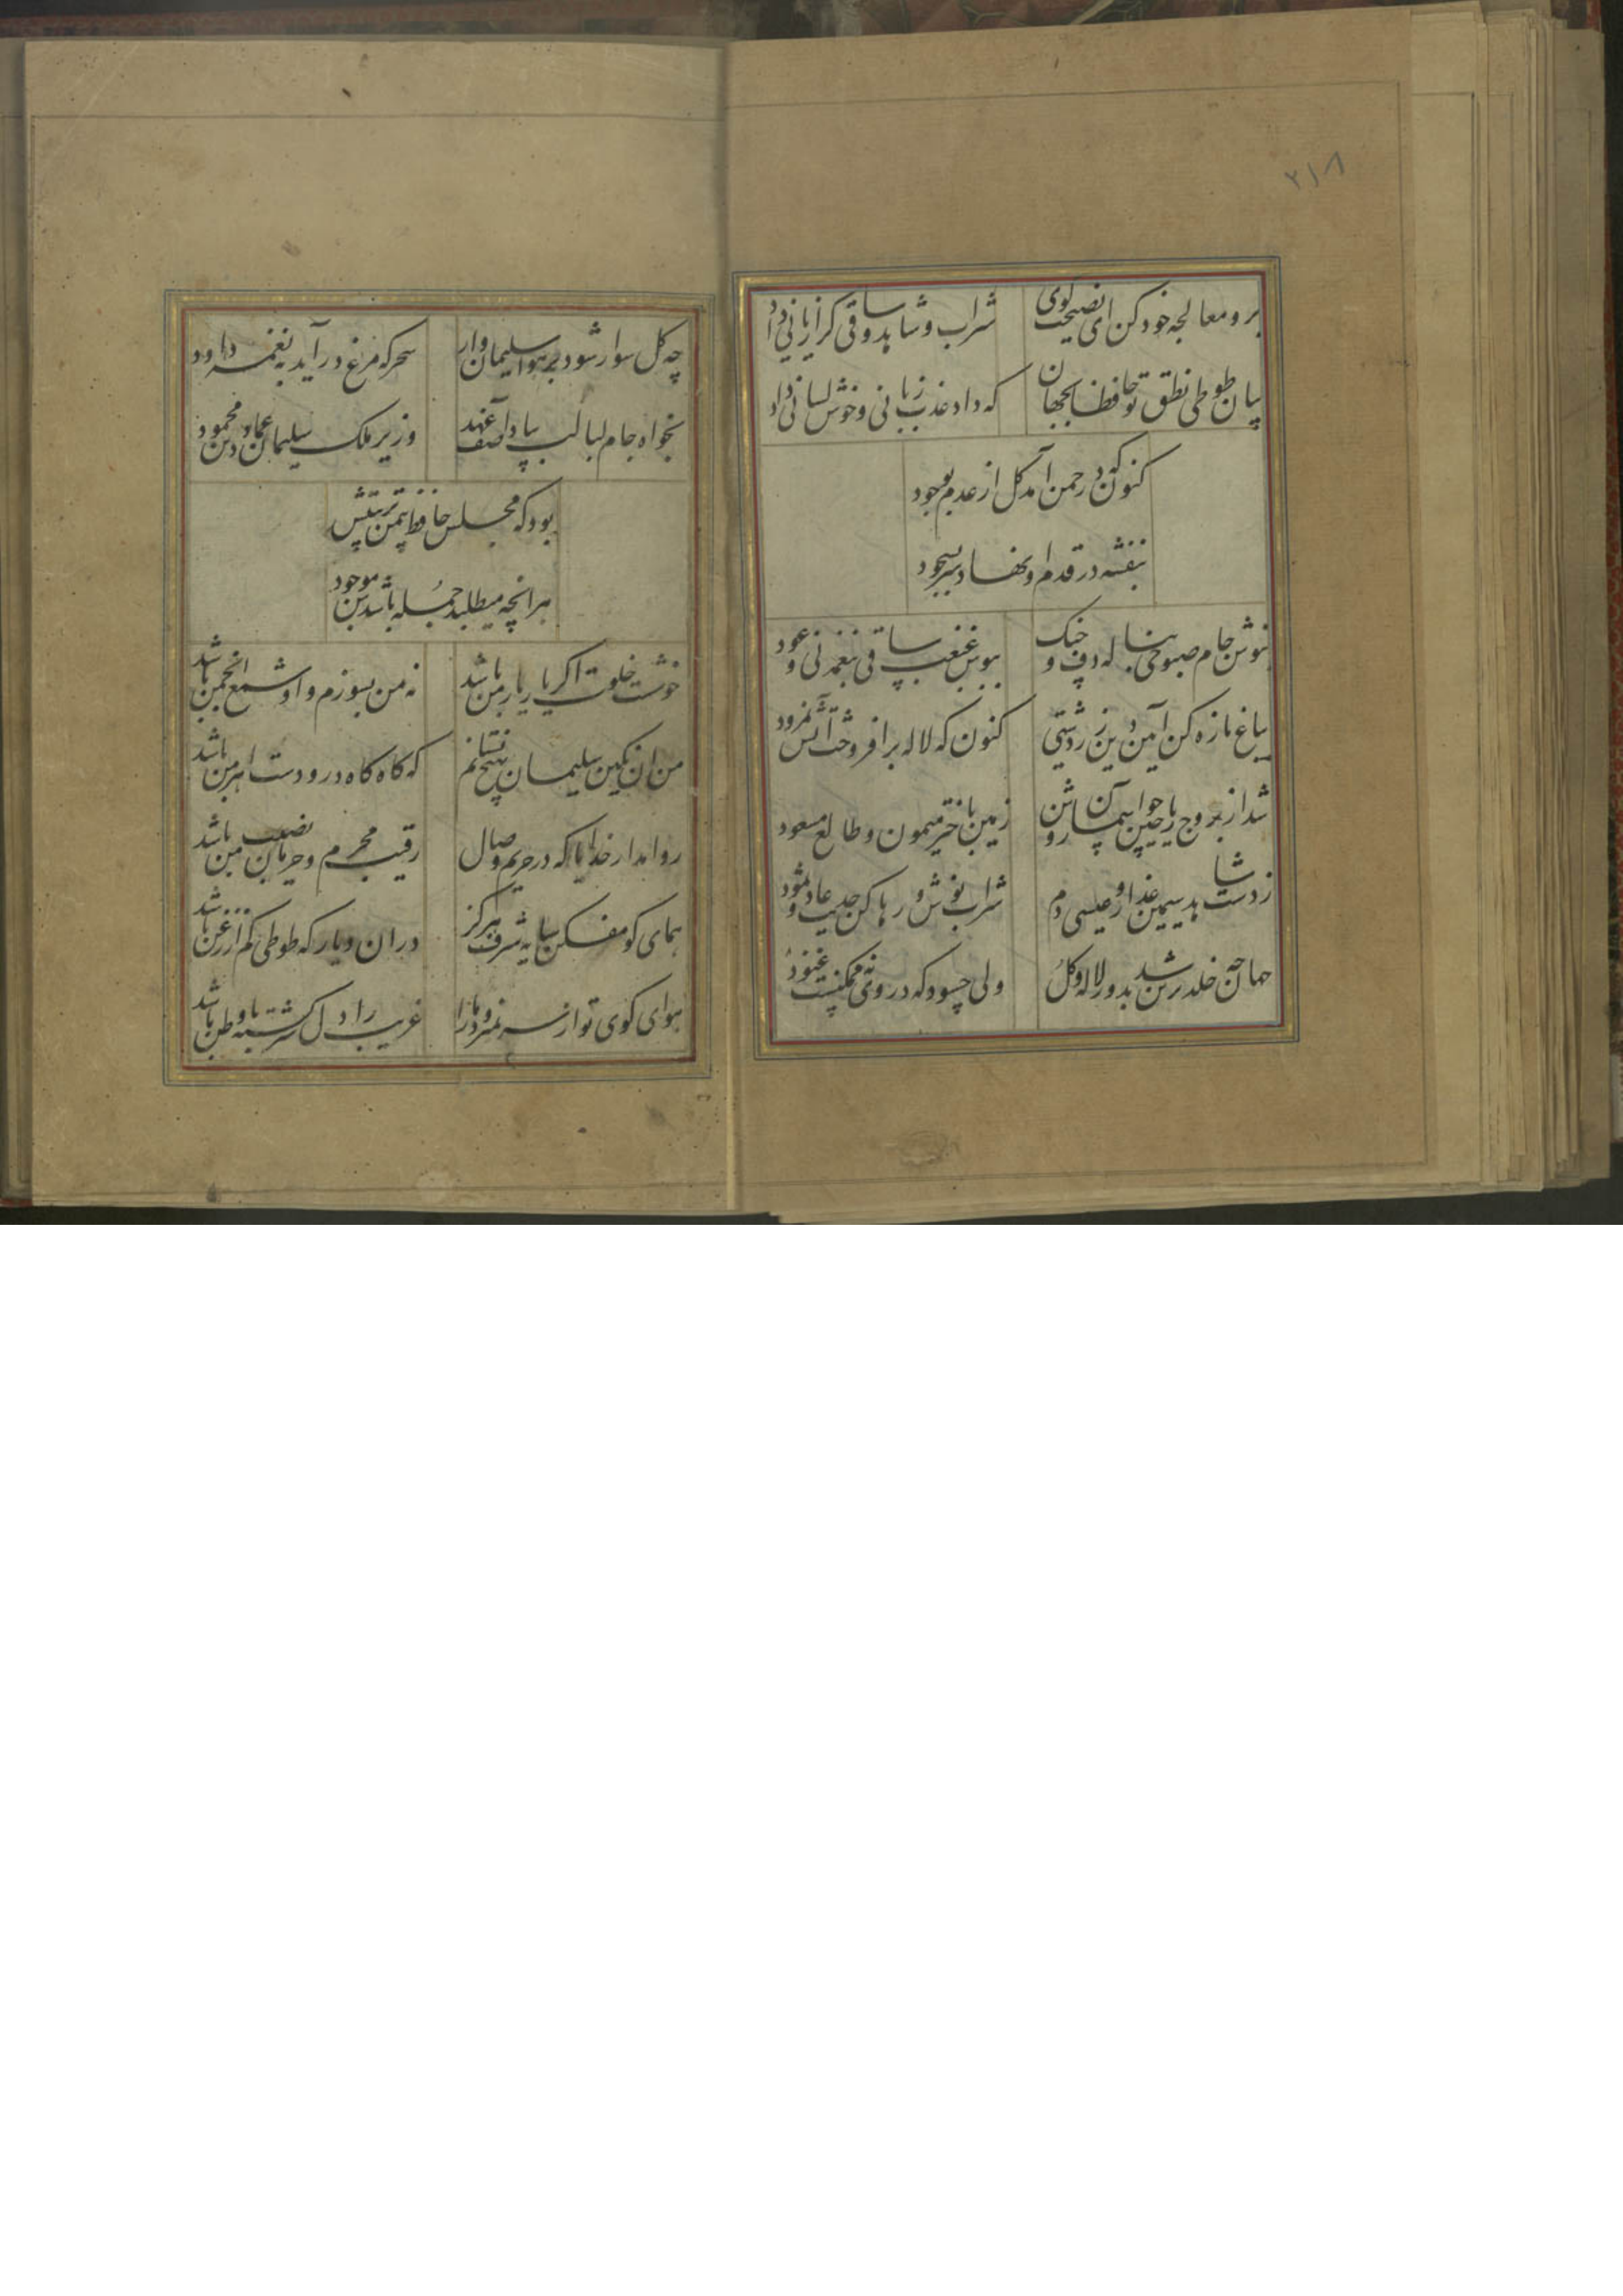 ۲۱۸
برو معالجه خود کن ای نصیحت گوی
شراب و شاهد و ساقی کرا زیانی داد
بیان طوطی نطق تو حافظا بجهان
که داد عذب زبانی و خوش لسانی داد
کنون که در چمن آمد گل از عدم بوجود
بنفشه در قدم او نهاد سر بسجود
بنوش جام صبوحی بناله دف و چنک
ببوس غبغب ساقی بنغمه نی و عود
بباغ تازه کن آیین دین زردشتی
کنون که لاله برافروخت آتش نمرود
شد از بروج ریاحین چو آسمان روشن
زمین باختر میمون و طالع مسعود
ز دست شاهد سیمین عذار و عیسی دم
شراب نوش و رها کن حدیث عاد و ثمود
جهان چه خلد برین شد بدور لاله و گل
ولی چسود که در وی نه ممکنست خلود
چه گل سوار شود بر هوا سلیمان وار
سحر که مرغ درآید به نغمه داود
بخواه جام لبالب بیاد آصف عهد
وزیر ملک سلیمان عماد دین محمود
بود که مجلس حافظ بیمن تربیتش
هرانچه میطلبد جمله باشدش موجود
خوشست خلوت اگر یار یار من باشد
نه من بسوزم و او شمع انجمن باشد
من ان نکین سلیمان بهیچ نستانم
که کاه کاه درو دست اهرمن باشد
روا مدار خدایا که در حریم وصال
رقیب محرم و حرمان نصیب من باشد
همای کو مفکن سایه شرف هرکز
دران دیار که طوطی کم از زغن باشد
هوای کوی تو از سر نمیرود مارا
غریب را دل سرکشته با وطن باشد